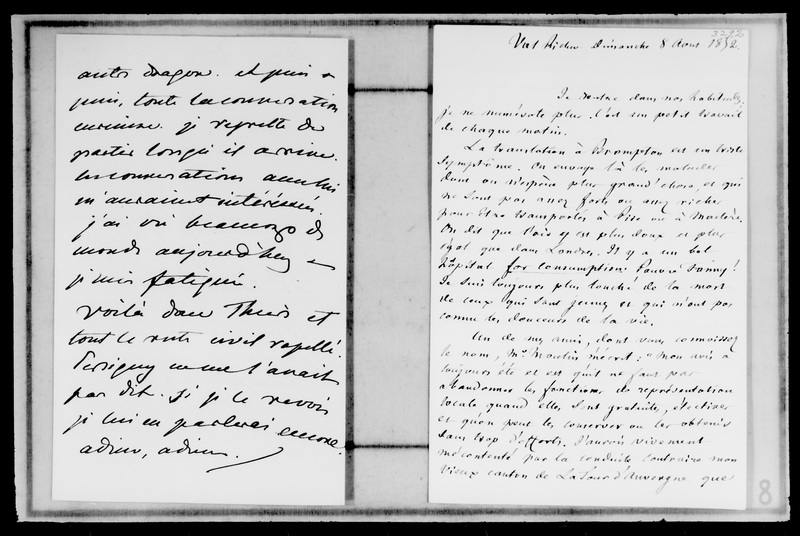 autre dragon. et puis
puis, toute la conversation
curieuse. je regrette de
partir lorsqu'il arrive.
les conversations avec lui
m'auraient intéressée.
j'ai vu beaucoup de
monde aujourd'huy
je suis fatiguée.
voilà donc Thiers et
tout le reste civil rapellé.
Persigny ne me l'avait
pas dit. Si je le revois
je lui en parlerai encore.
adieu, adieu.
3272
Val Richer Dimanche 8 Août 1852
Je rentre dans nos habitudes;
je ne numérote plus. C'est un petit travail
de chaque matin.
La translation à Brompton est un triste
symptôme. On envoye là les malades
dont on n'espère plus grand chose, et qui
ne sont pas assez forts ou assez riches
pour être transportés à Pise ou à Madère.
On dit que l'air y est plus doux et plus
égal que dans Londres. Il y a un bel
hôpital for consumption. Pauvre Fanny!
Je suis toujours plus touché de la mort
de ceux qui sont jeunes et qui n'ont pas
connu les douceurs de la vie.
Un de mes amis, dont vous connoissez
le nom, Mr Moulin m'écrit: "Mon avis a
toujours été et est qu'il ne faut pas
abandonner les fonctions de représentation
locale quand elles sont gratuites, électives
et qu'on peut les conserver ou les obtenir
sans trop d'efforts. J'aurois vivement
mécontenté par la conduite contraire mon
vieux canton de La Tour d'Auvergne que
8